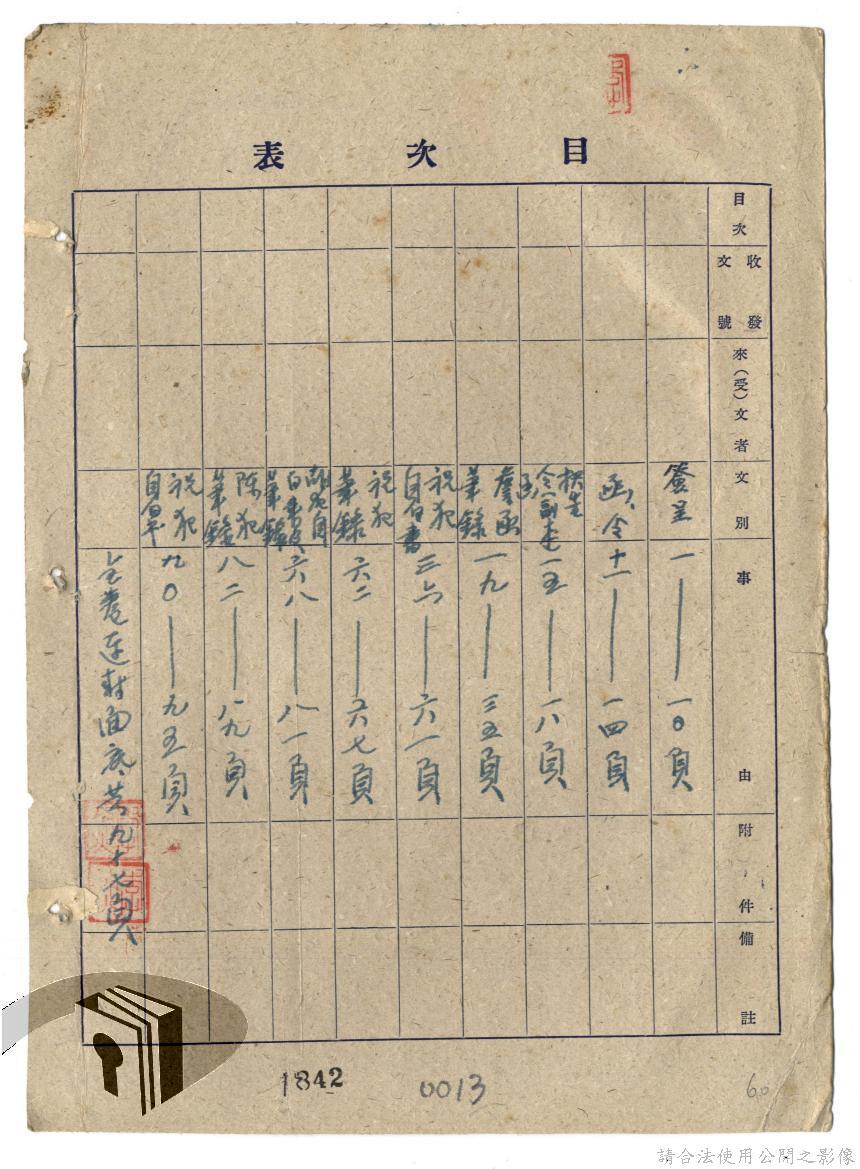 目次表
目次
收發文號
來(受)文者
文別
事由
附件
備註
簽呈 一——一〇頁
函、令 十一——一四頁
一五——一八頁
筆錄 一九——三五頁
祝犯自白書 三六——六一頁
祝犯筆錄 六二——六七頁
六八——八一頁
陳犯筆錄 八二——八九頁
祝犯自白 九〇——九五頁
全卷連封面底共九十七頁
1842
0013
60
請合法使用公開之影像